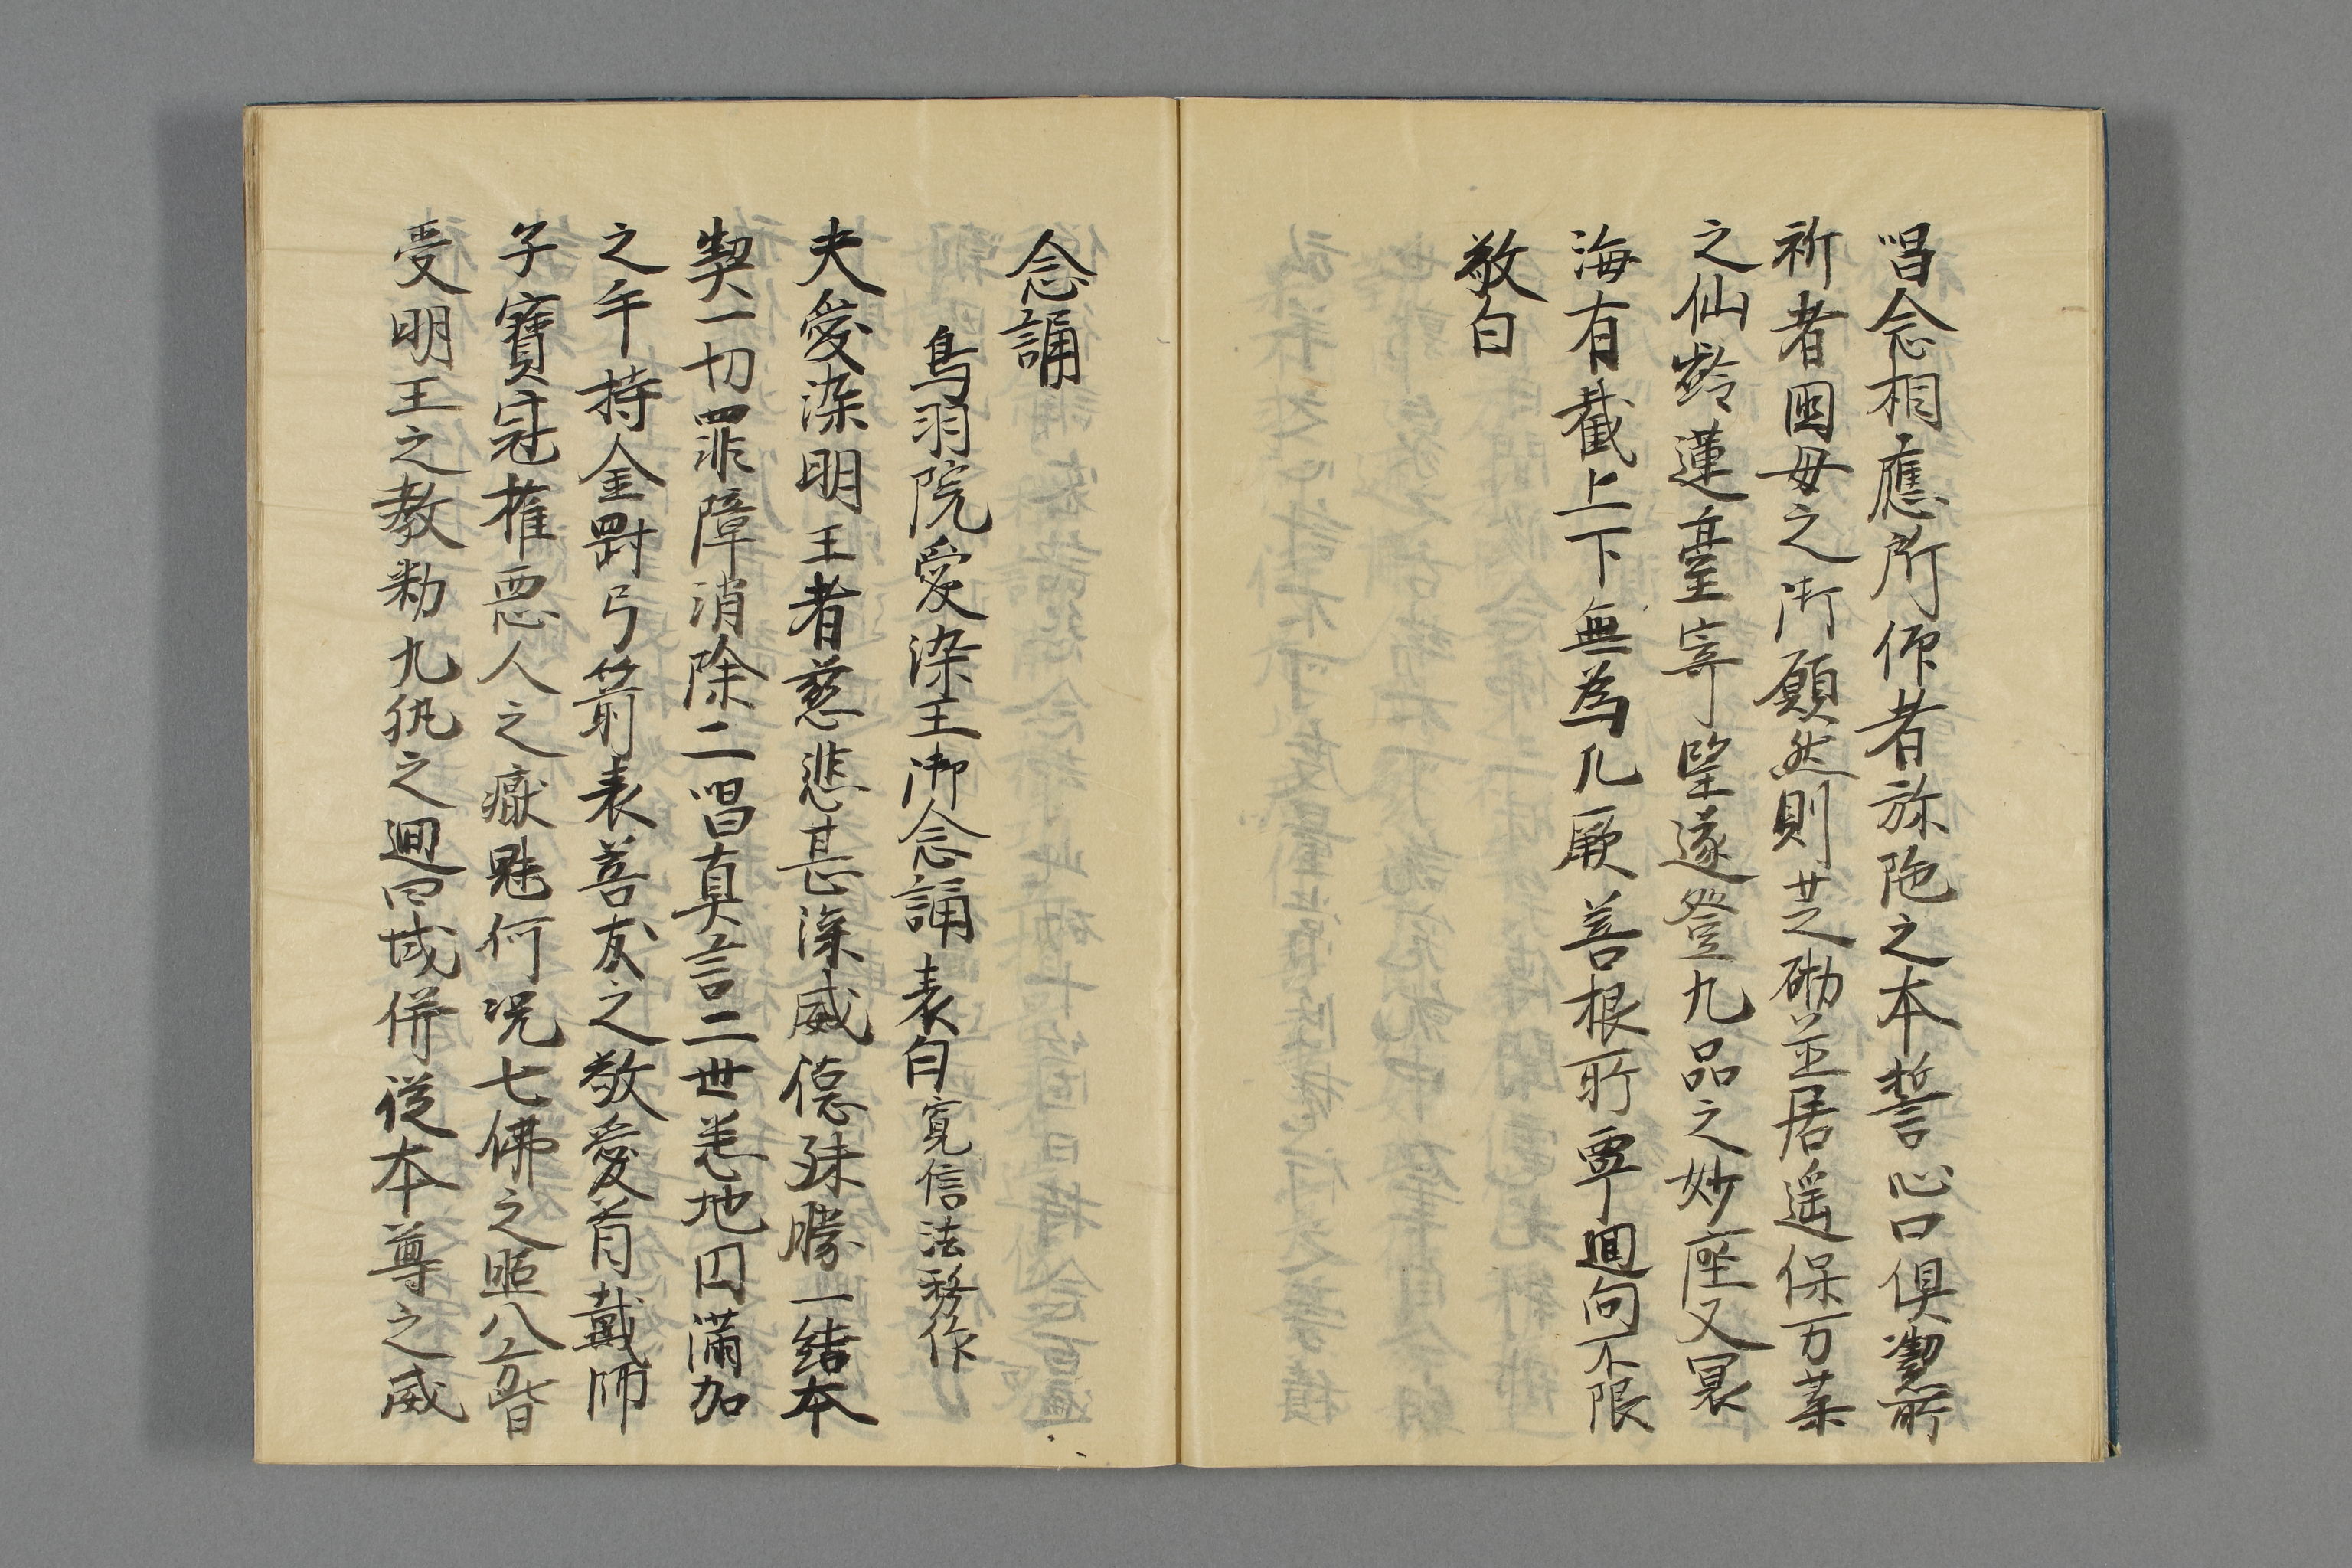 唱念相應所仰者弥陁之本誓心口俱潔所
祈者國母之御願然則芝砌並居遥保万葉
之仙齡蓮臺寄望遂登九品之妙座又冥
海有截上下無為凡厥善根所覃廻向不限
敬白
念誦
鳥羽院愛染王御念誦表白寛信法務作
夫愛染明王者慈悲甚深威德殊勝一結本
契一切罪障消除二唱真言二世悉地円滿加
之手持金剛弓箭表善友之敬愛首戴師
子寶冠摧惡人之嶽魁何况七佛之曜八方皆
受明王之教勅九執之廻四域併從本尊之威